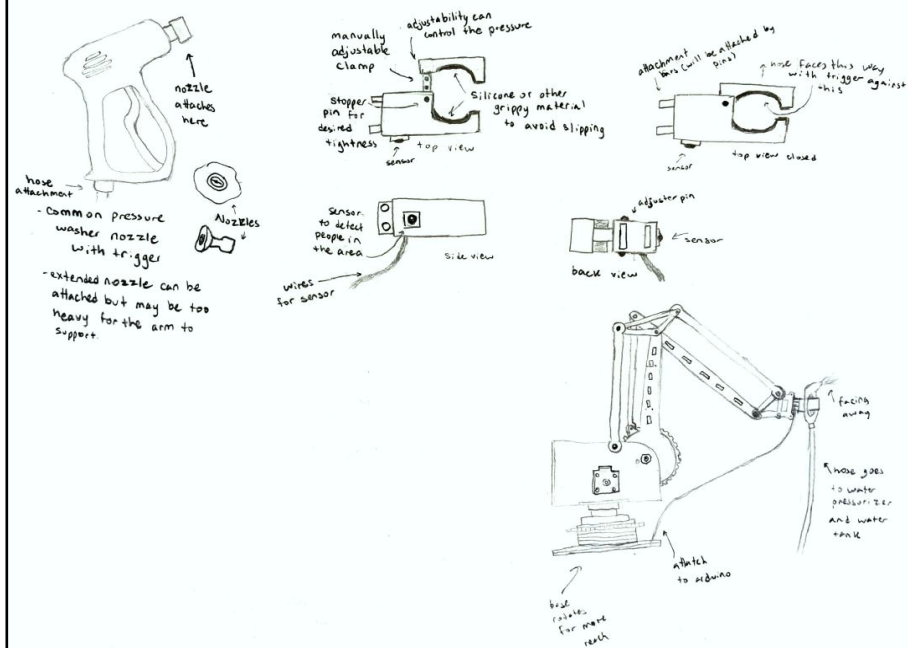 nozzle
attaches
here
hose
attachment
Nozzles
- Common pressure
washer nozzle
with trigger
- extended nozzle can be
attached but may be too
heavy for the arm to
support.
manually
adjustable
clamp
adjustability can
control the pressure
stopper
pin for
desired
tightness
Silicone or other
grippy material
to avoid slipping
sensor
top view
attachment
bars (will be attached by
pins)
hose faces this way
with trigger against
this
sensor
top view closed
sensor
to detect
people in
the area
wires
for sensor
side view
adjuster pin
sensor
back view
facing
away
hose goes
to water
pressurizer
and water
tank
attatch
to arduino
base
rotates
for more
reach